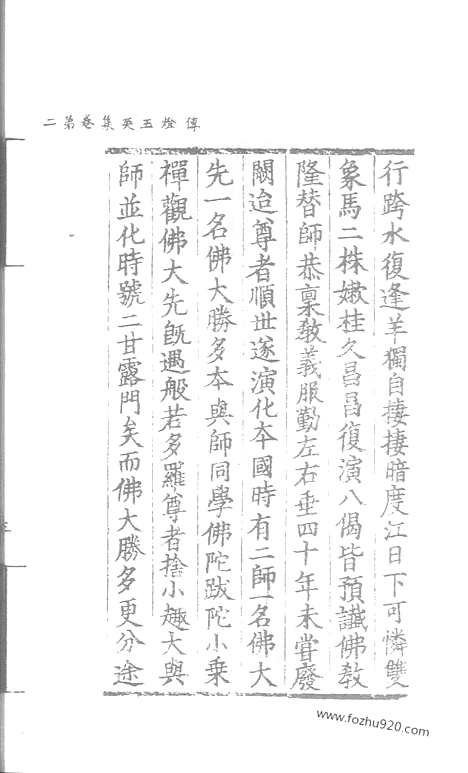 傳燈玉英集卷第二
行跨水復逢羊獨自棲棲暗度江日下可憐雙
象馬二株嫩桂久昌昌復演八偈皆預讖佛教
隆替師恭稟教義服勤左右垂四十年未嘗廢
闕迨尊者順世遂演化本國時有二師一名佛大
先一名佛大勝多本與師同學佛陀跋陀小乗
禪觀佛大先旣遇般若多羅尊者捨小趣大與
師並化時號二甘露門矣而佛大勝多更分途
www.fozhu920.com